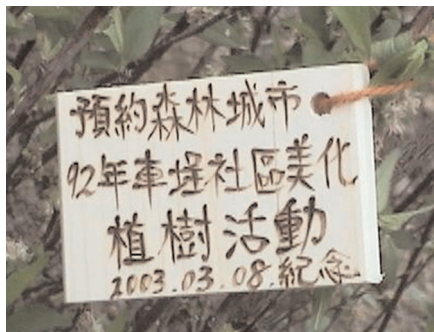 預約森林城市
92年車埕社區美化
植樹活動
2003.03.08.紀念